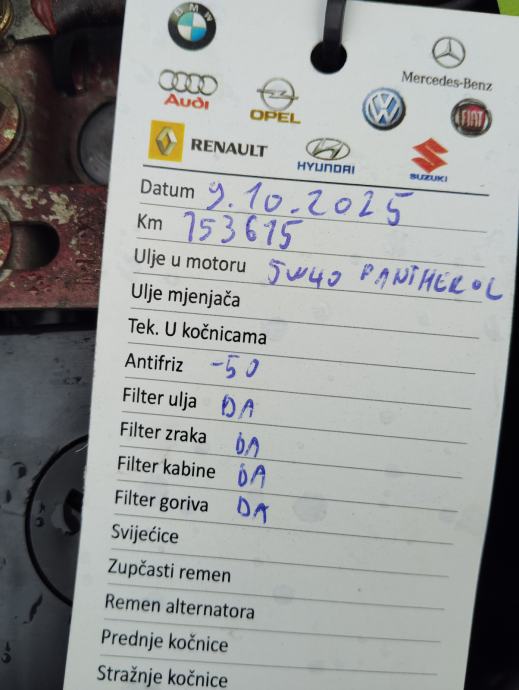 BMW
Mercedes-Benz
Audi
OPEL
FIAT
RENAULT
HYUNDAI
SUZUKI
Datum 9.10.2025
Km 153615
Ulje u motoru 5W40 PANTHEROL
Ulje mjenjača
Tek. U kočnicama
Antifriz -50
Filter ulja DA
Filter zraka DA
Filter kabine DA
Filter goriva DA
Svijećice
Zupčasti remen
Remen alternatora
Prednje kočnice
Stražnje kočnice